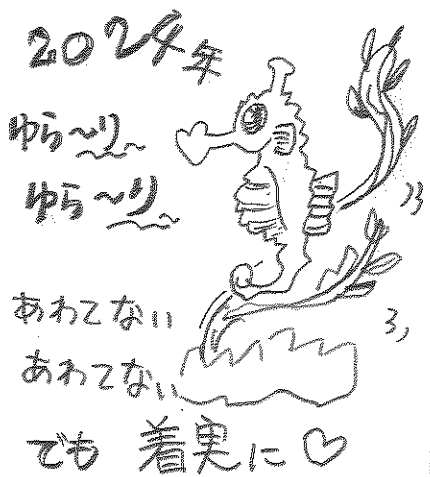 2024年
ゆら〜り
ゆら〜り
あわてない
あわてない
でも 着実に♡